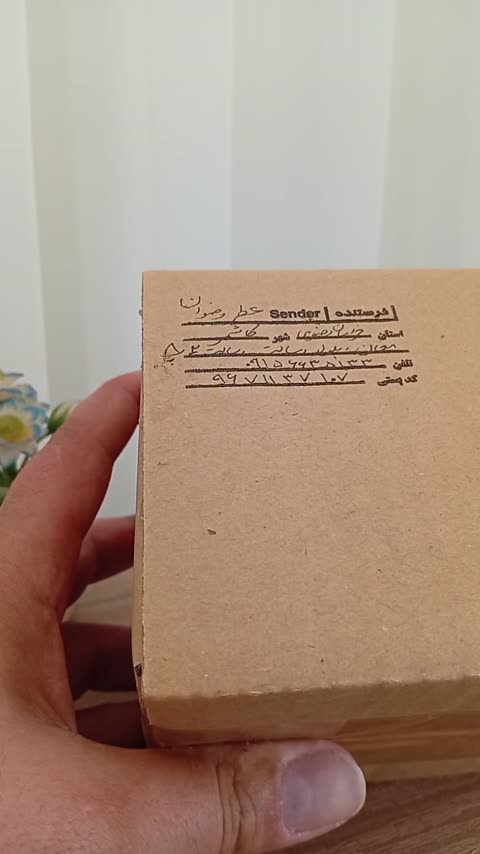 فرستنده | Sender عطر رضوان
استان خراسان رضوی شهر کاشمر
رسالت رسالت ۴ پ ۸
تلفن ۰۹۱۵۶۶۳۵۱۳۳
کد پستی ۹۶۷۱۱۳۷۱۰۷